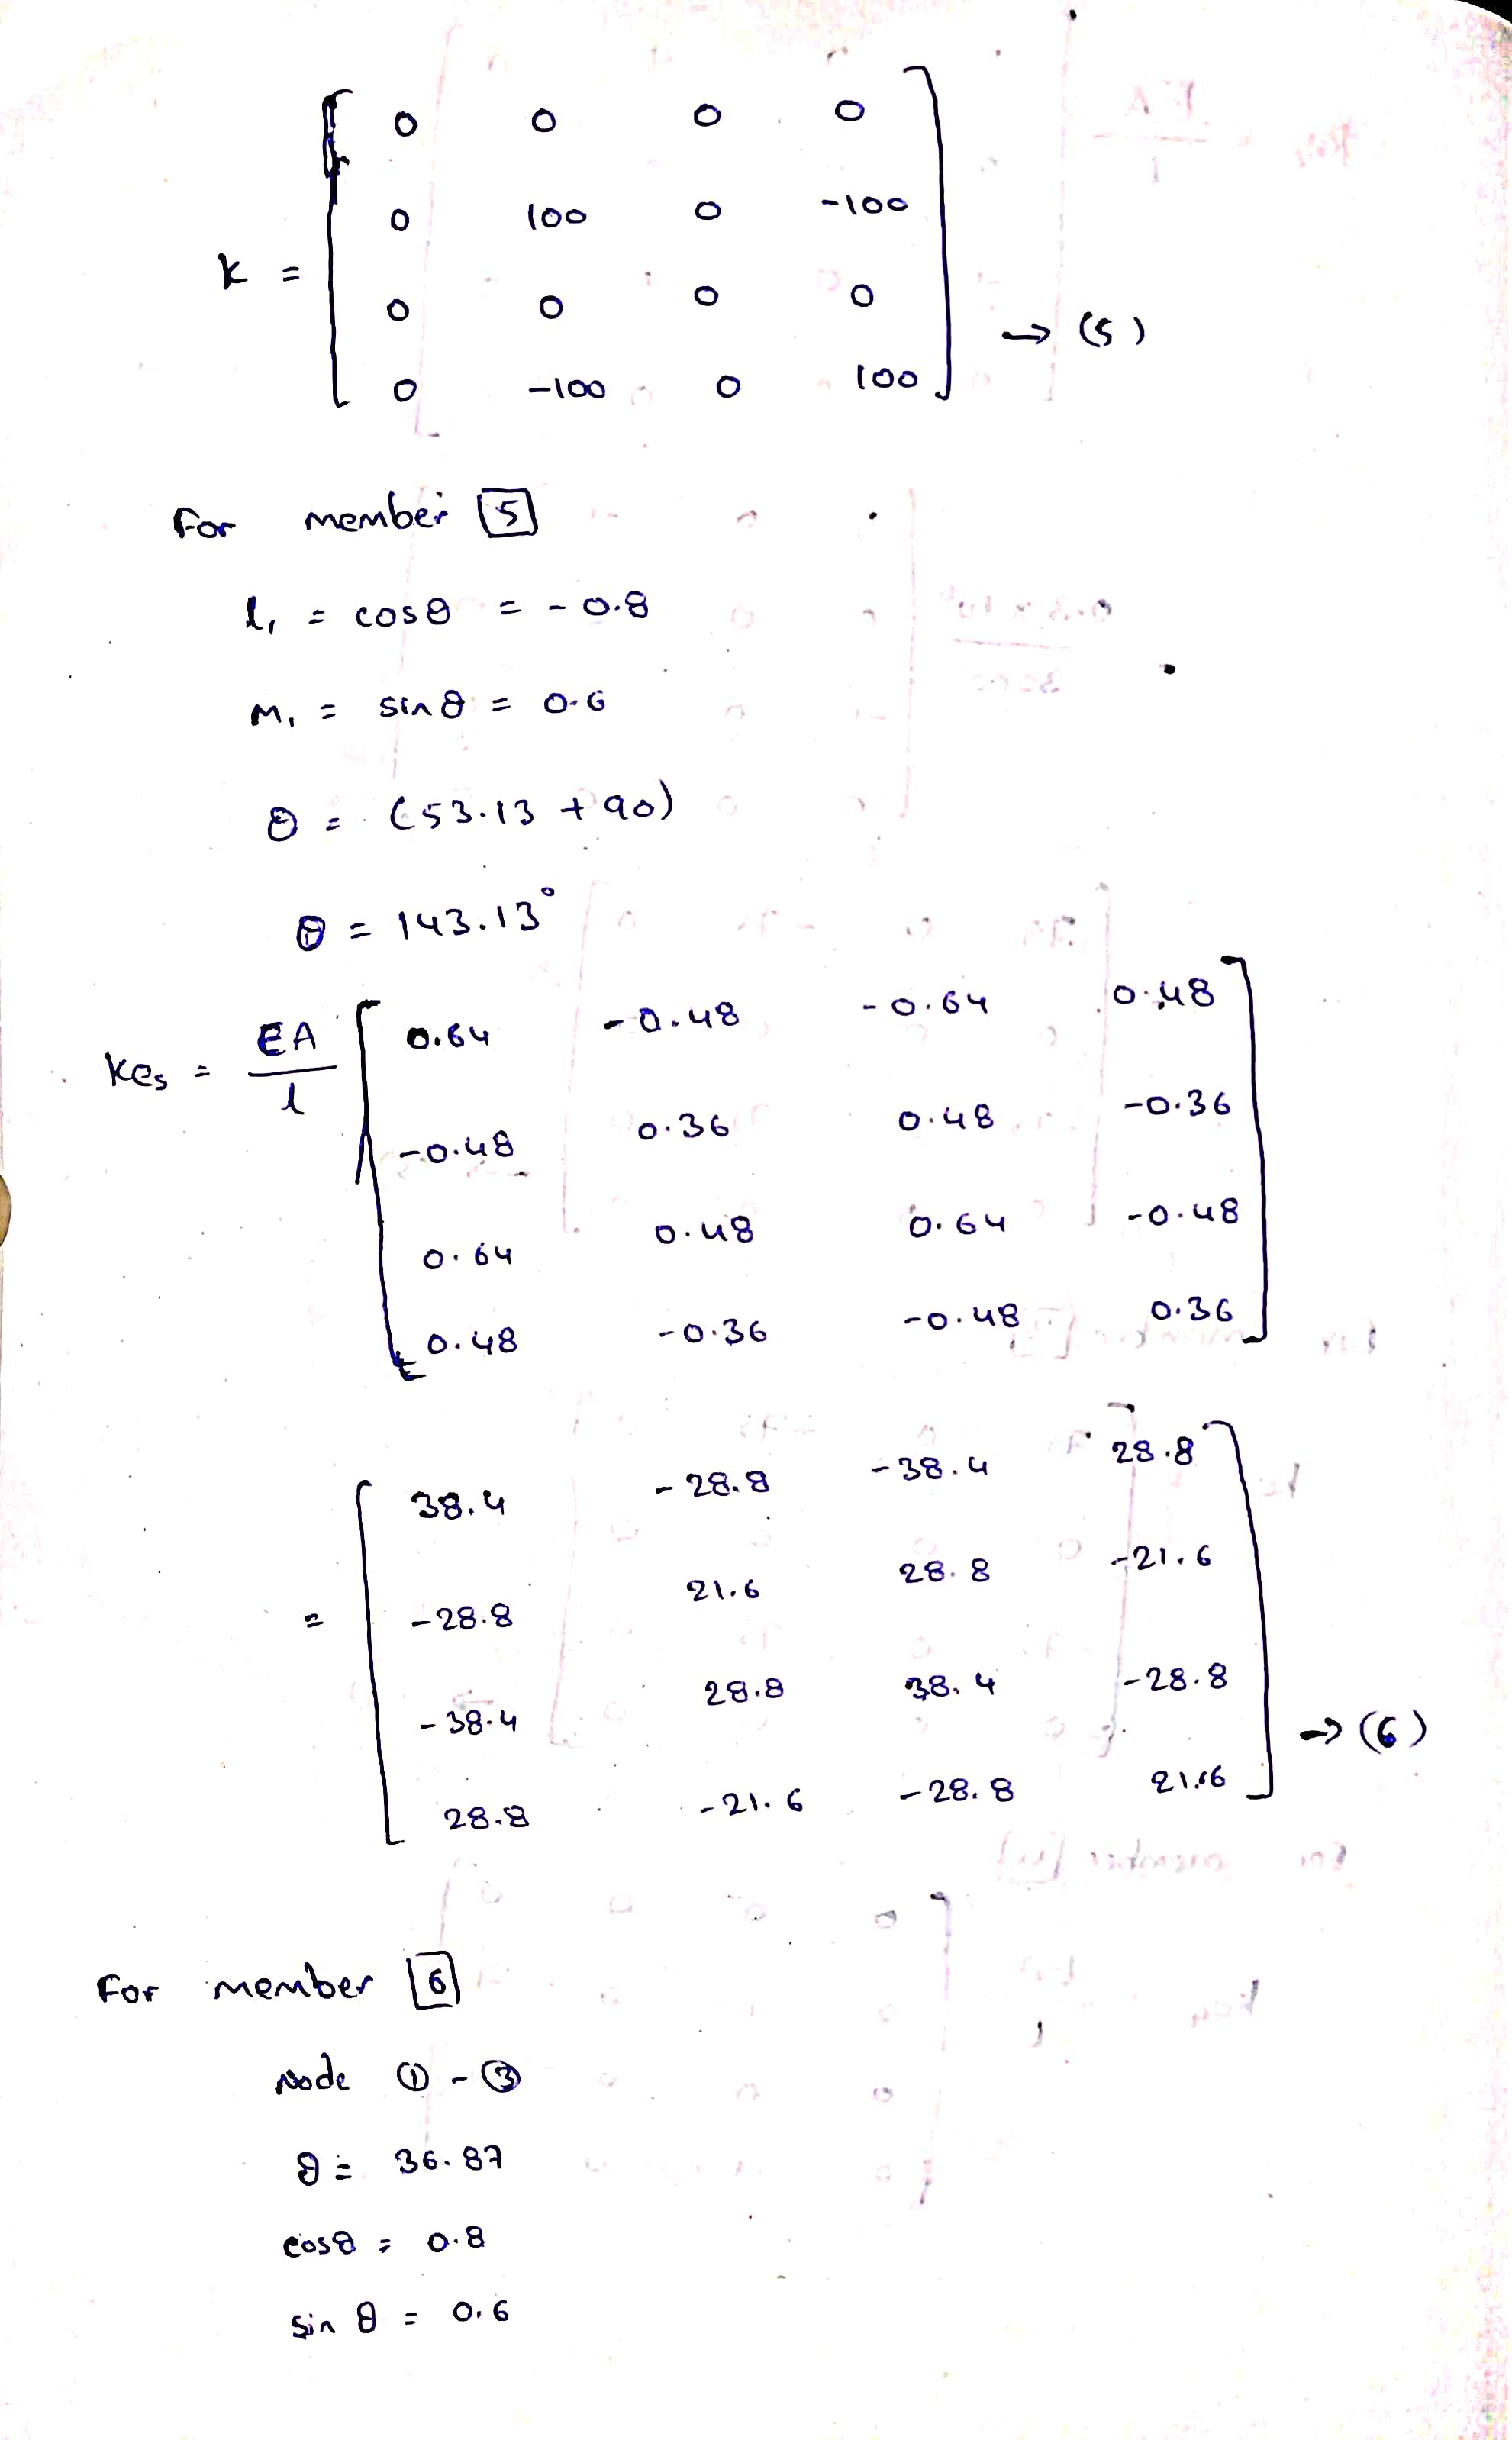 0 0 0 0
0 100 0 -100
k =
0 0 0 0
→ (5)
0 -100 0 100
For member 5
l₁ = cosθ = -0.8
m₁ = sinθ = 0.6
θ = (53.13 + 90)
θ = 143.13°
ke₅ = EA / l
0.64 -0.48 -0.64 0.48
-0.48 0.36 0.48 -0.36
0.64 0.48 0.64 -0.48
0.48 -0.36 -0.48 0.36
=
38.4 -28.8 -38.4 28.8
-28.8 21.6 28.8 -21.6
-38.4 28.8 38.4 -28.8
→ (6)
28.8 -21.6 -28.8 21.6
For member 6
Node ① - ③
θ = 36.87
cosθ = 0.8
sin θ = 0.6